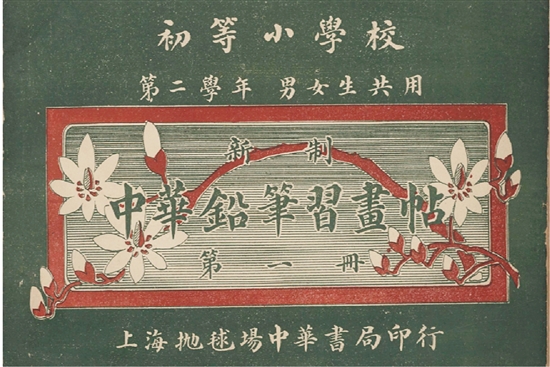 初等小學校
第二學年 男女生共用
新制
中華鉛筆習畫帖
第一冊
上海拋球場中華書局印行